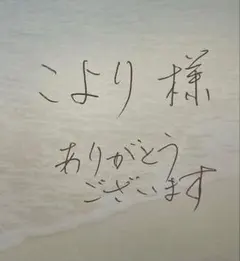 こより 様
ありがとう
ございます